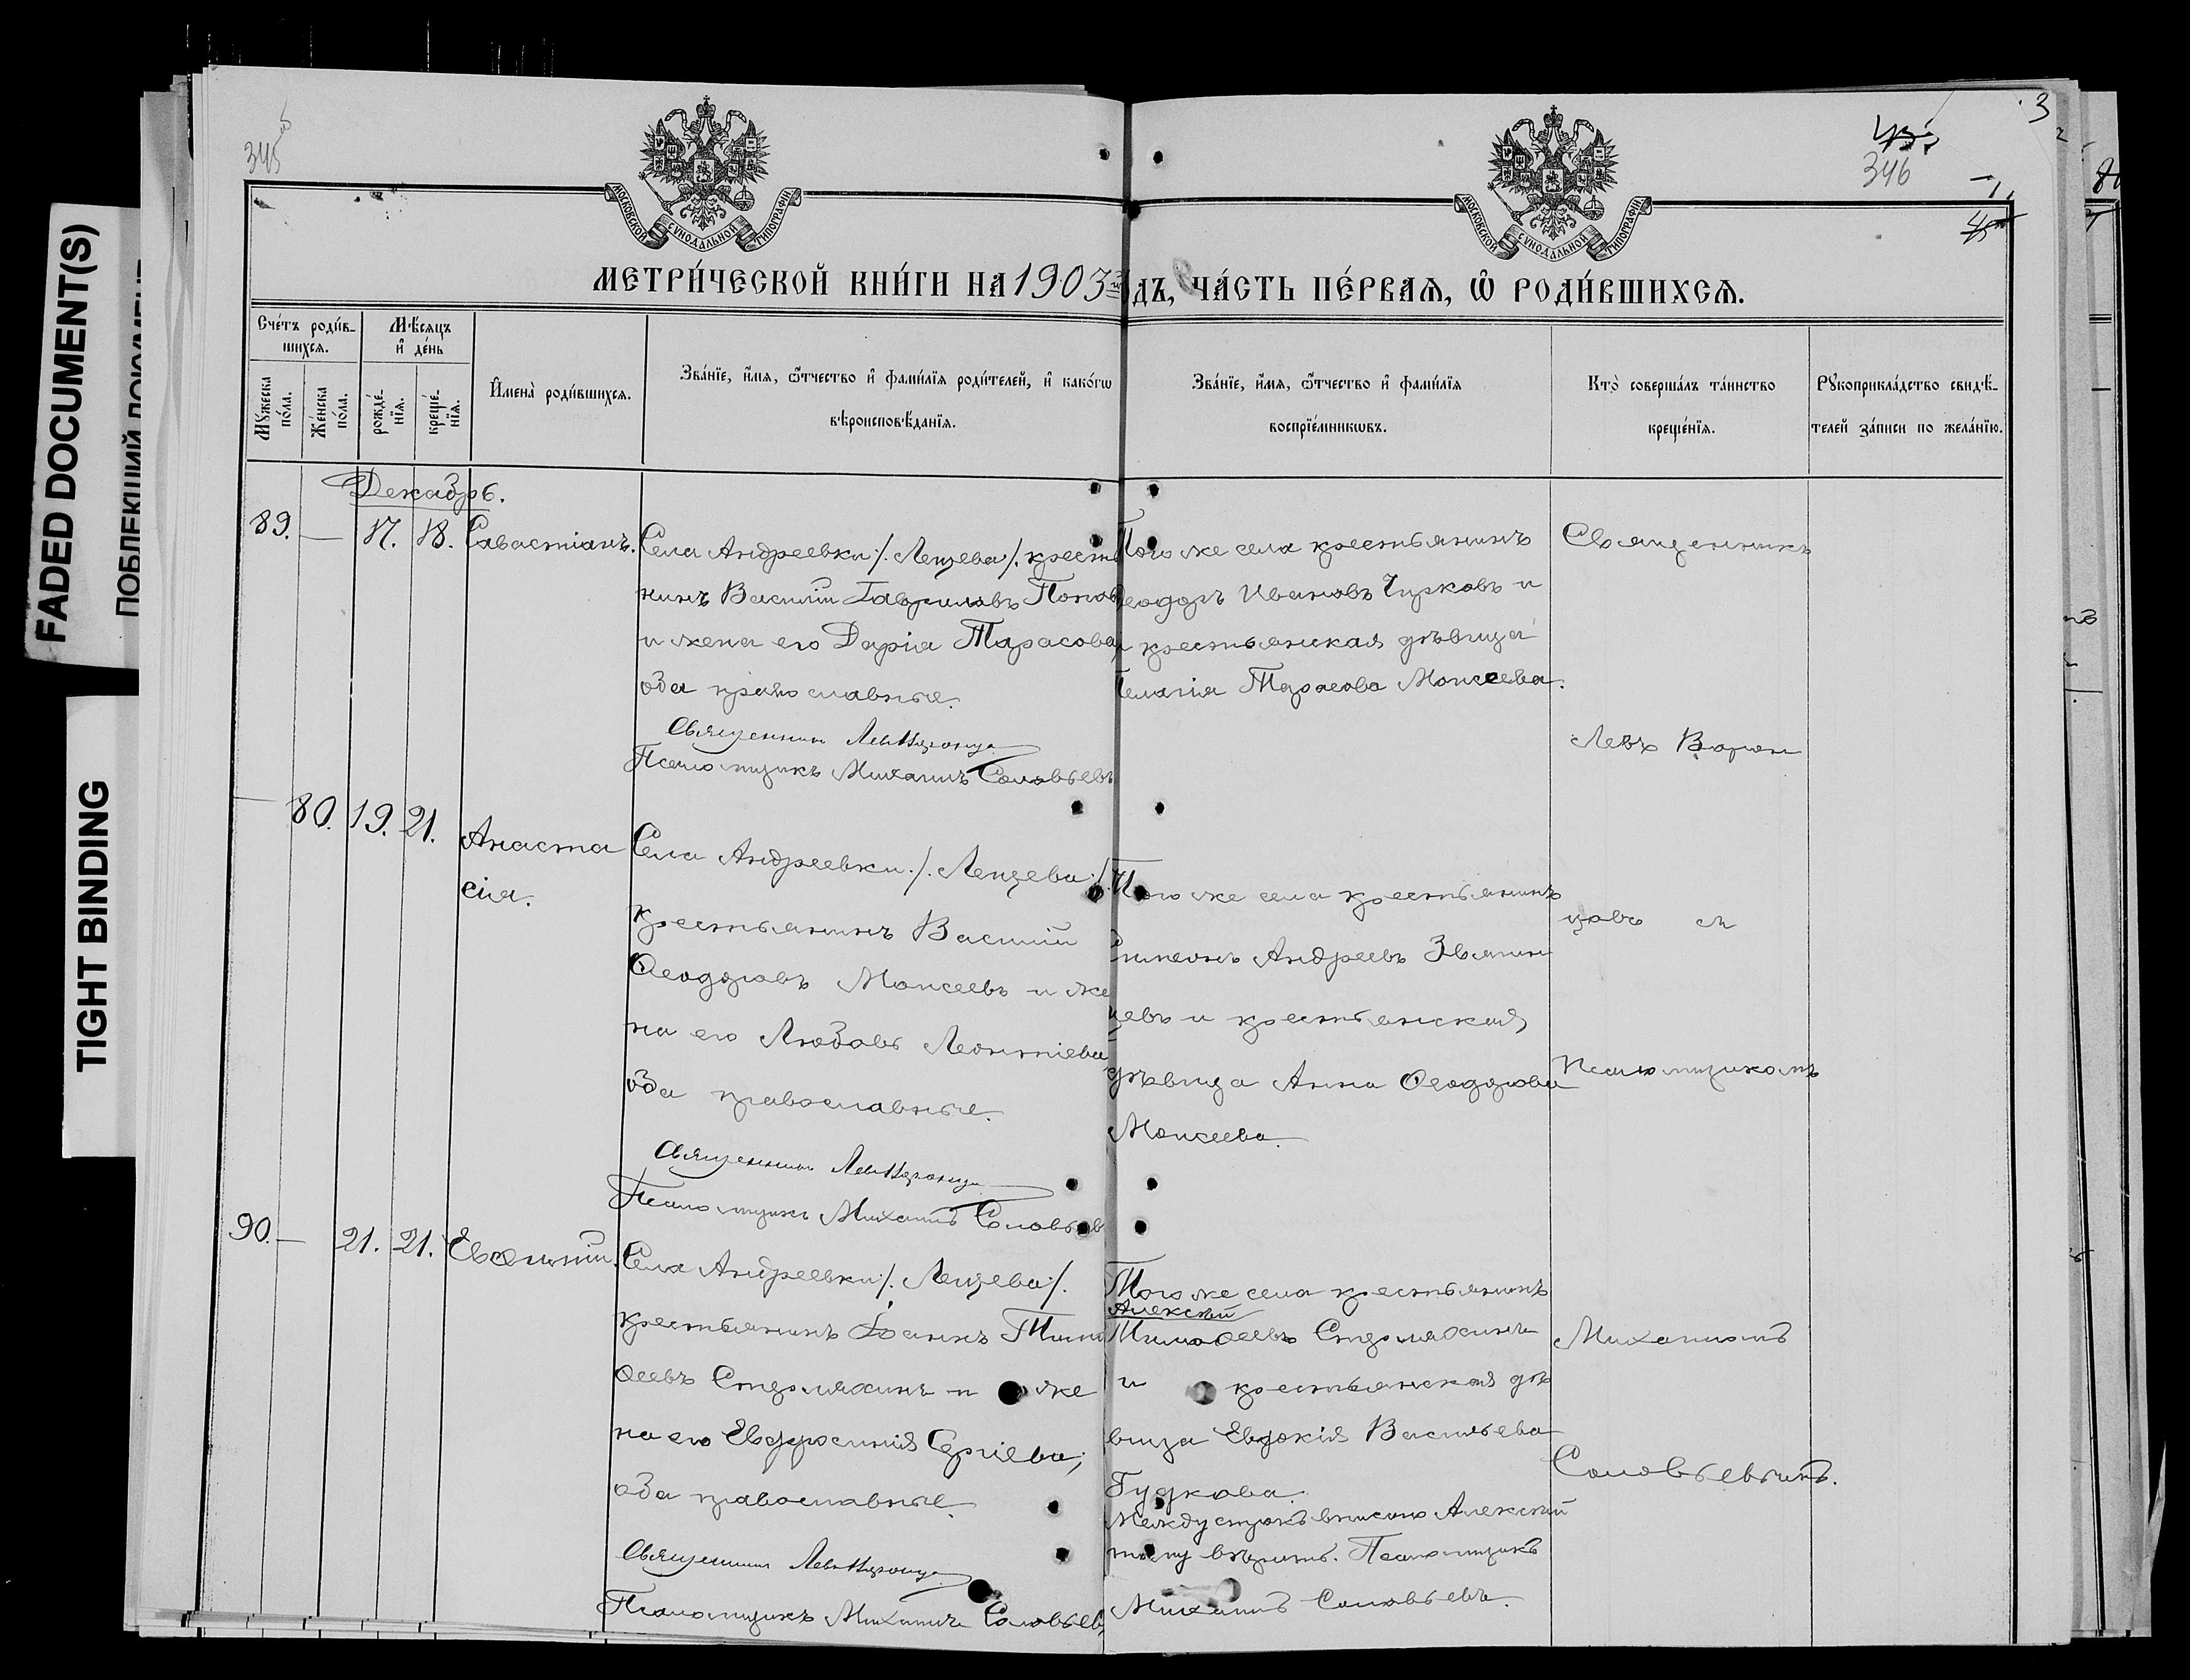 FADED DOCUMENT(S)
TIGHT BINDING
345
346
3
МОСКОВСКОЙ СѴНОДАЛЬНОЙ ТИПОГРАФІИ
МОСКОВСКОЙ СѴНОДАЛЬНОЙ ТИПОГРАФІИ
МЕТРИ́ЧЕСКОЙ КНИ́ГИ НА 1903 ДЪ, ЧА́СТЬ ПЕ́РВАѦ, Ѡ҆ РОДИ́ВШИХСѦ.
Сче́тъ роди́в-
шихсѧ.
Мꙋ́жеска по́ла.
Же́нска по́ла.
Мѣ́сяцъ
и҆ де́нь
рожде́-
нїѧ.
креще́-
нїѧ.
И҆мена̀ роди́вшихсѧ.
Зва́нїе, и҆́мѧ, ѻ҆́тчество и҆ фами́лїѧ роди́телей, и҆ како́гѡ
вѣроисповѣ́данїѧ.
Зва́нїе, и҆́мѧ, ѻ҆́тчество и҆ фами́лїѧ
воспрїе́мникѡвъ.
Кто̀ соверша́лъ та́инство
креще́нїѧ.
Рꙋкоприкла́дство свидѣ́-
телей за́писи по жела́нїю.
Декабрь.
89. — 17. 18. Савастіанъ.
Села Андреевки /. Ленцева /. крестья
нинъ Василій Гавриловъ Попов
и жена его Дарія Тарасова
оба православные.
Священникъ Левъ Воронцо
Псаломщикъ Михаилъ Соловьевъ
Того же села крестьянинъ
Ѳеодоръ Ивановъ Чурковъ и
крестьянская дѣвица
Пелагія Тарасова Моисеева.
Священникъ
Левъ Ворон
цовъ съ
псаломщикомъ
Михаиломъ
Соловьевымъ.
— 80. 19. 21. Анаста
сія.
Села Андреевки /. Ленцева /.
крестьянинъ Василій
Ѳеодоровъ Моисеевъ и же
на его Любовь Леонтіева
оба православные.
Священникъ Левъ Воронцо
Псаломщикъ Михаилъ Соловьевъ
Того же села крестьянинъ
Симеонъ Андреевъ Звягин
цевъ и крестьянская
дѣвица Анна Ѳеодорова
Моисеева.
90. — 21. 21. Евѳимій.
Села Андреевки /. Ленцева /.
крестьянинъ Іоаннъ Тимо
ѳеевъ Стромахинъ и же
на его Евфросинія Сергіева;
оба православные.
Священникъ Левъ Воронцо
Псаломщикъ Михаилъ Соловьев
Того же села крестьянинъ
Алексѣй
Тимоѳеевъ Стромахинъ
и крестьянская дѣ
вица Евдокія Васильева
Гудкова.
Между строкъ вписано Алексѣй
тому вѣрить. Псаломщикъ
Михаилъ Соловьевъ.